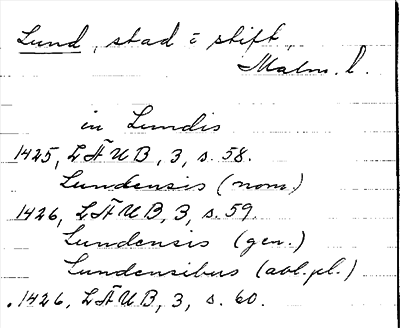 Lund, stad i stift,
Malm. l.
in Lundis
1425, LÄUB, 3, s. 58.
Lundensis (nom.)
1426, LÄUB, 3, s. 59.
Lundensis (gen.)
Lundensibus (abl. pl.)
1426, LÄUB, 3, s. 60.